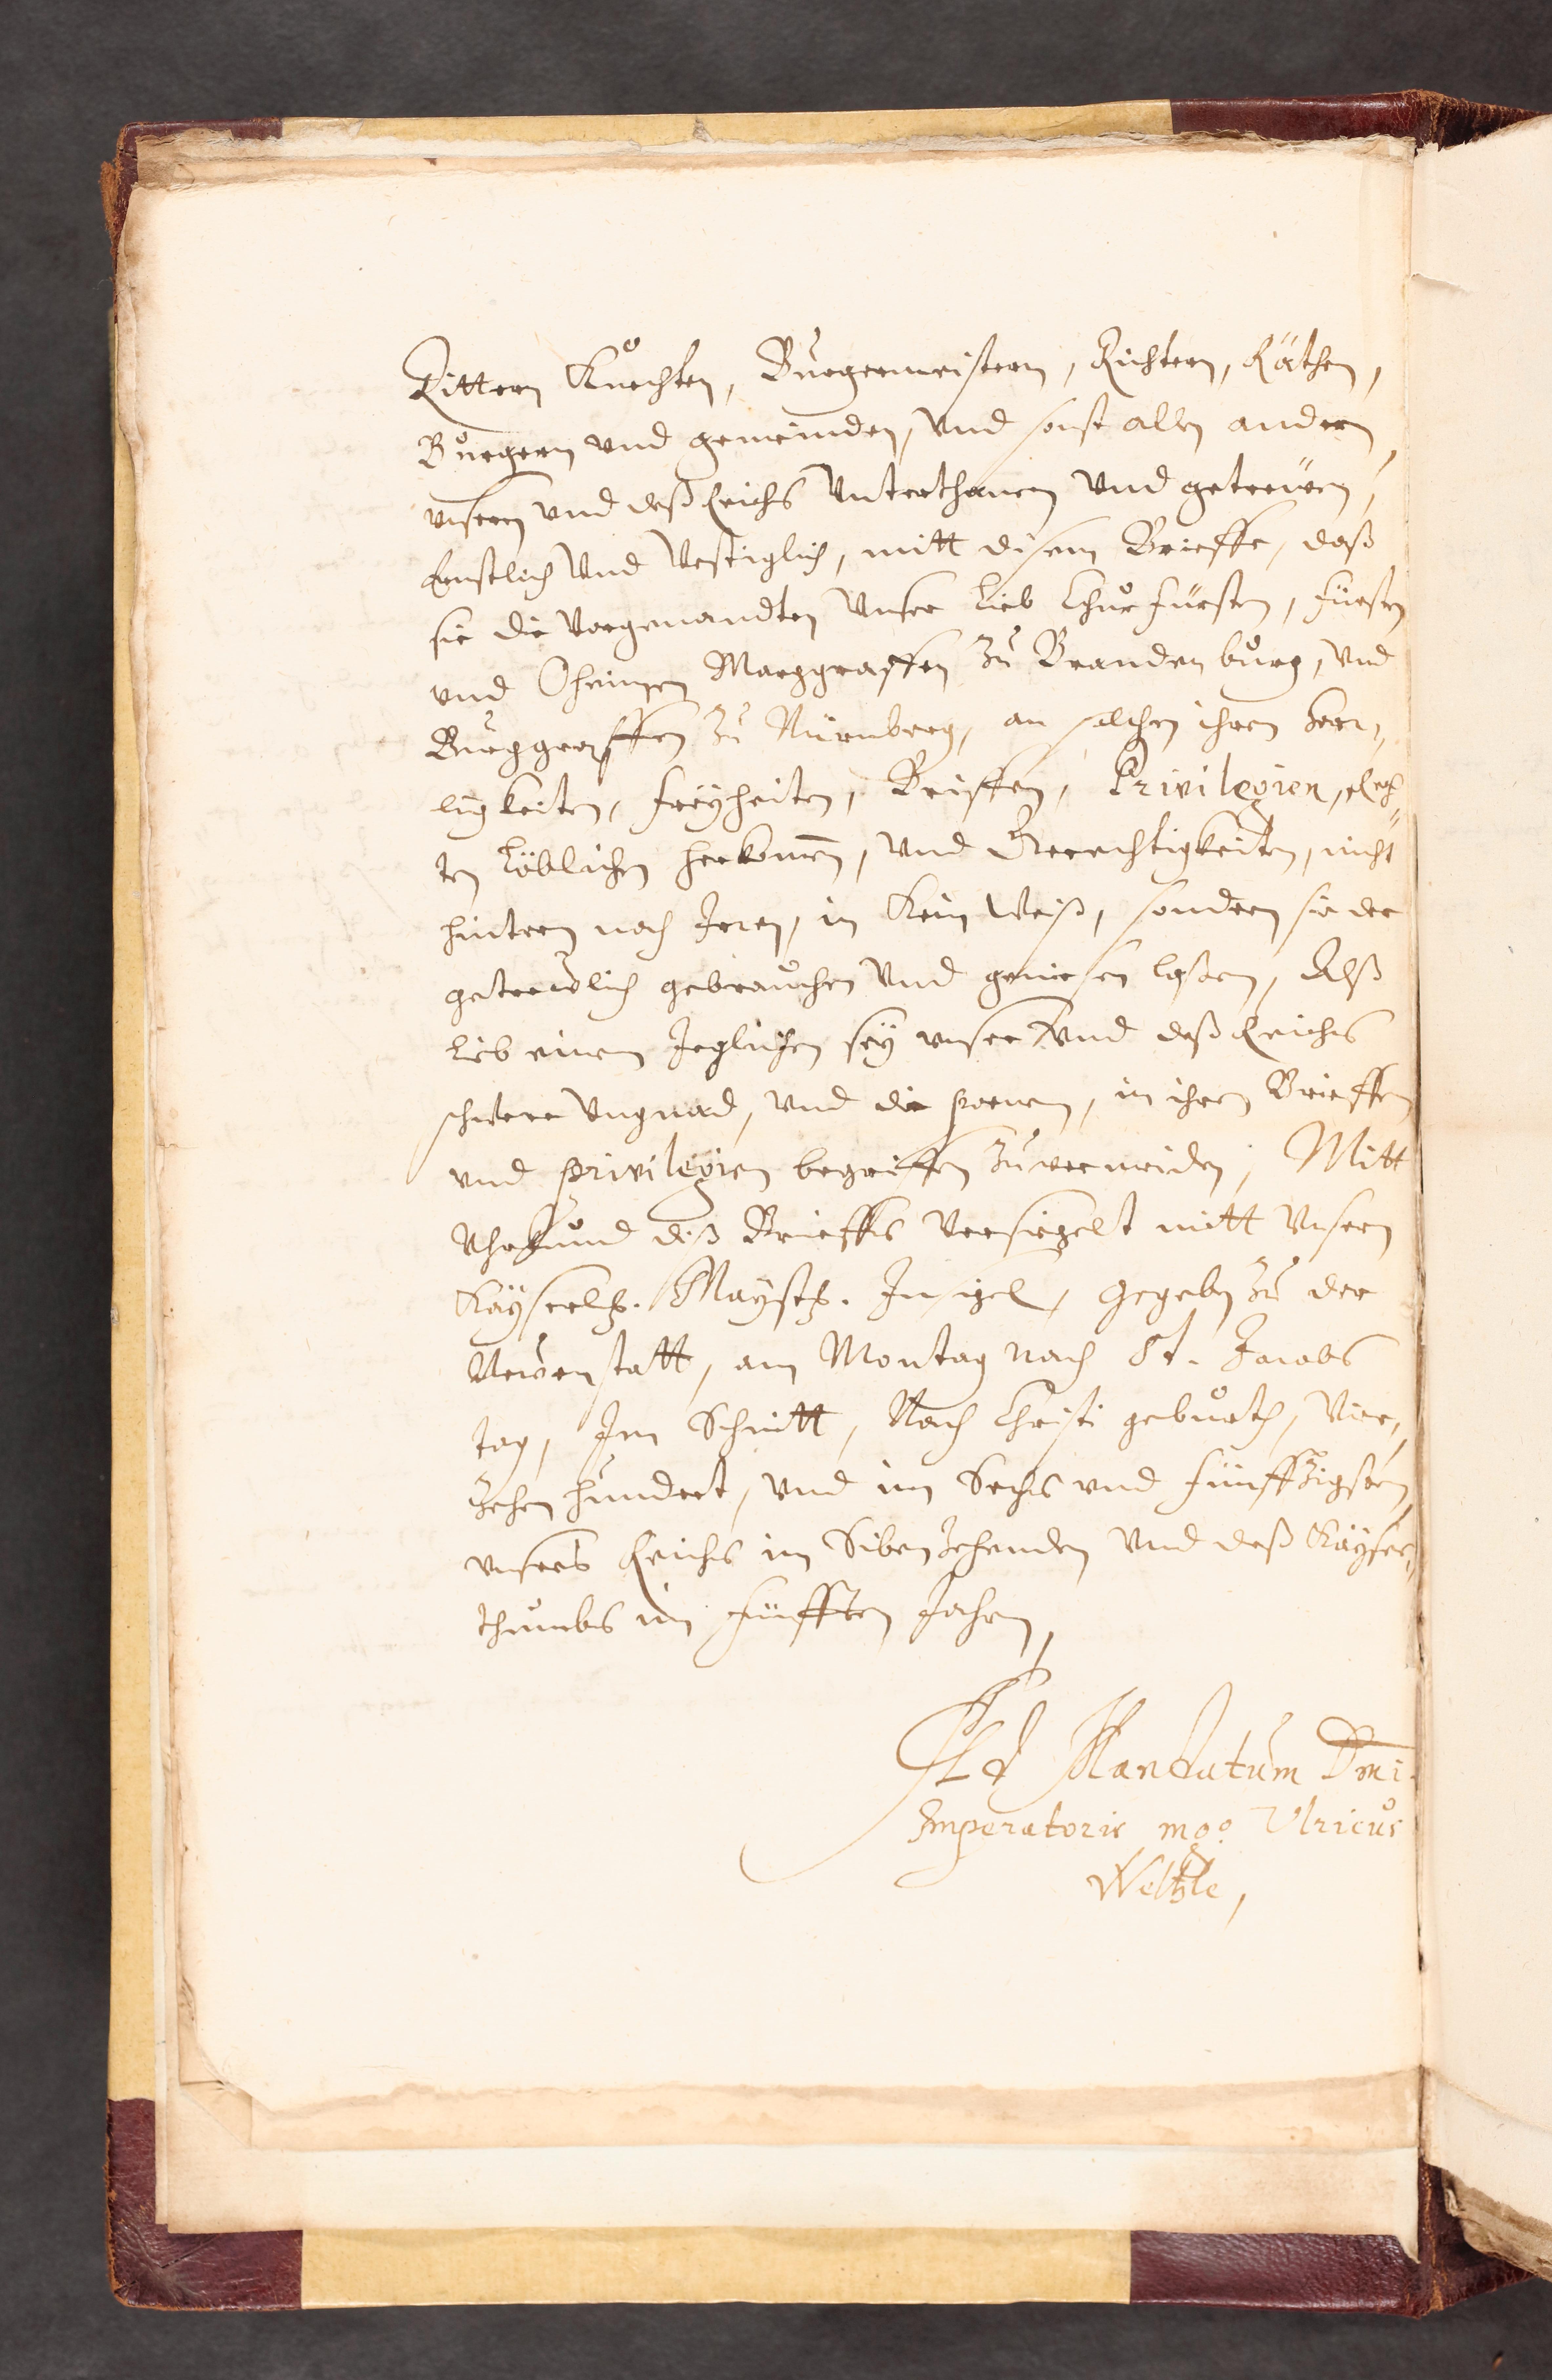 Rittern Knechten, Burgermeistern, Richtern, Räthen,
Burgern und gemeinden, Und sonst allen andern
unsern und deß Reichs Unterthanen Und getreüen,
Ernstlich Und Vestiglich, mitt disem Brieffe, daß
sie die Vorgenandten Unser lieb Churfürsten, fürsten
und Oheimen Marggraffen Zu Brandenburg, Und
Burggraffen Zu Nürmberg, an solchen ihren herr,
ligkeiten, freyheiten, Brieffen, Privilegien, Rech,,
ten Löblichen herkom̄en, Und Gerechtigkeiten, nicht
hintern noch Irren, in Kein Weiß, sondern sie der
getreulich gebrauchen Und geniesen laßen, Alß
lieb einem Jeglichen sey unser Und deß Reichs
schwere Ungnad, Und die poenen, in ihren Brieffen
und privilegien begriffen Zuvermeiden; Mitt
Uhrkund diß Brieffs Versiegelt mitt Unserm
Käyserlh. Maysth. Insigel, Gegeben Zu der
Newenstatt, am Montag nach St. Jacobs
tag, Im Schnitt, Nach Christi geburth, Vier,,
Zehen hundert, Und im Sechs und fünffZigsten,
unsers Reichs im SibenZehenden Und deß Käyser,,
thumbs im fünfften Jahren,
Ad Mandatum Dmi.
Imperatoris Ulricus
Weltzle,